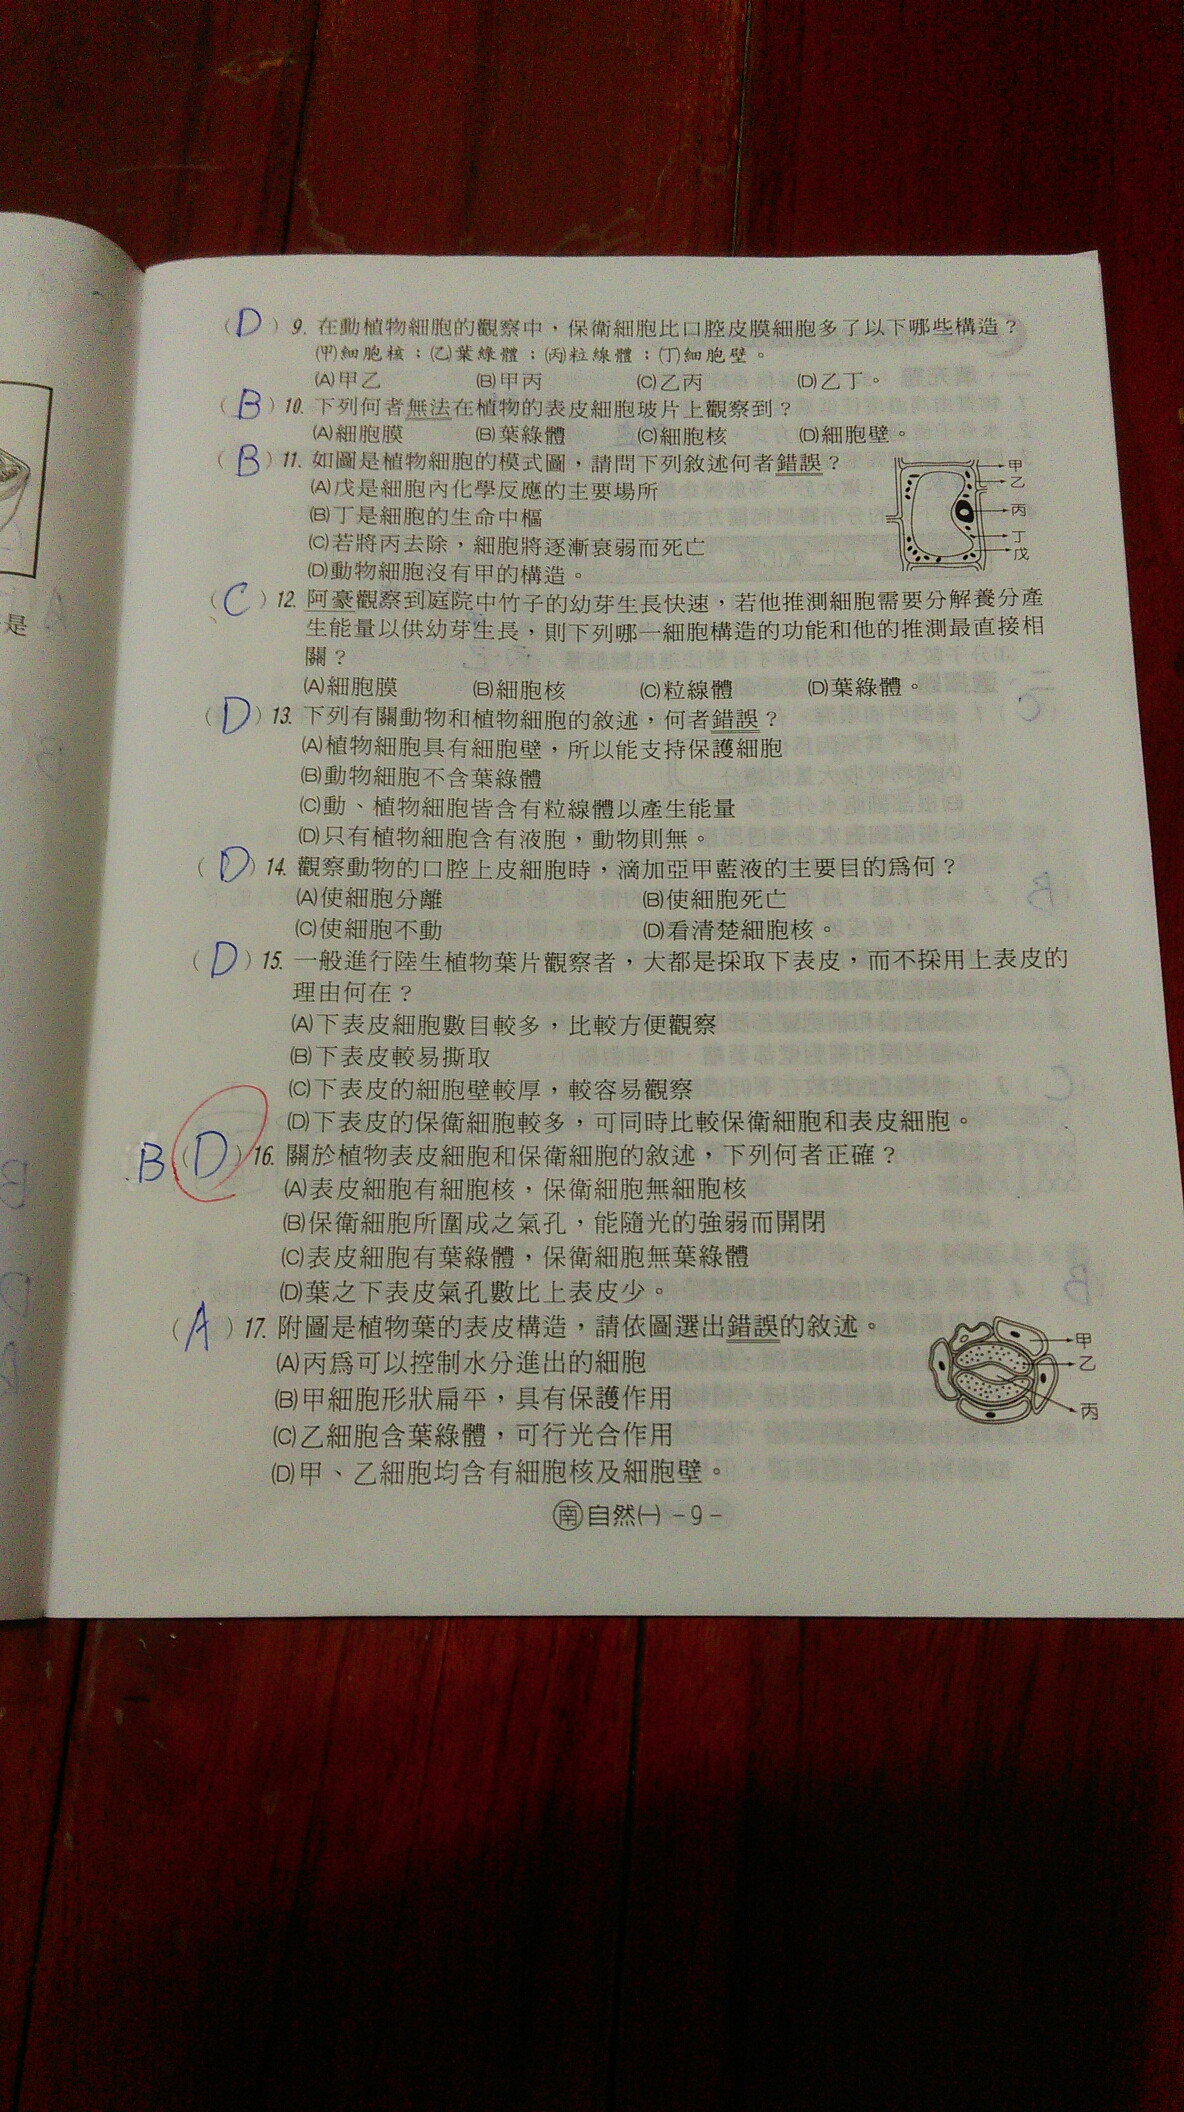 (D) 9. 在動植物細胞的觀察中，保衛細胞比口腔皮膜細胞多了以下哪些構造？
(甲)細胞核；(乙)葉綠體；(丙)粒線體；(丁)細胞壁。
(A)甲乙 (B)甲丙 (C)乙丙 (D)乙丁。
(B) 10. 下列何者無法在植物的表皮細胞玻片上觀察到？
(A)細胞膜 (B)葉綠體 (C)細胞核 (D)細胞壁。
(B) 11. 如圖是植物細胞的模式圖，請問下列敘述何者錯誤？
(A)戊是細胞內化學反應的主要場所
(B)丁是細胞的生命中樞
(C)若將丙去除，細胞將逐漸衰弱而死亡
(D)動物細胞沒有甲的構造。
甲
乙
丙
丁
戊
(C) 12. 阿豪觀察到庭院中竹子的幼芽生長快速，若他推測細胞需要分解養分產
生能量以供幼芽生長，則下列哪一細胞構造的功能和他的推測最直接相
關？
(A)細胞膜 (B)細胞核 (C)粒線體 (D)葉綠體。
(D) 13. 下列有關動物和植物細胞的敘述，何者錯誤？
(A)植物細胞具有細胞壁，所以能支持保護細胞
(B)動物細胞不含葉綠體
(C)動、植物細胞皆含有粒線體以產生能量
(D)只有植物細胞含有液胞，動物則無。
(D) 14. 觀察動物的口腔上皮細胞時，滴加亞甲藍液的主要目的為何？
(A)使細胞分離 (B)使細胞死亡
(C)使細胞不動 (D)看清楚細胞核。
(D) 15. 一般進行陸生植物葉片觀察者，大都是採取下表皮，而不採用上表皮的
理由何在？
(A)下表皮細胞數目較多，比較方便觀察
(B)下表皮較易撕取
(C)下表皮的細胞壁較厚，較容易觀察
(D)下表皮的保衛細胞較多，可同時比較保衛細胞和表皮細胞。
B (D) 16. 關於植物表皮細胞和保衛細胞的敘述，下列何者正確？
(A)表皮細胞有細胞核，保衛細胞無細胞核
(B)保衛細胞所圍成之氣孔，能隨光的強弱而開閉
(C)表皮細胞有葉綠體，保衛細胞無葉綠體
(D)葉之下表皮氣孔數比上表皮少。
(A) 17. 附圖是植物葉的表皮構造，請依圖選出錯誤的敘述。
(A)丙為可以控制水分進出的細胞
(B)甲細胞形狀扁平，具有保護作用
(C)乙細胞含葉綠體，可行光合作用
(D)甲、乙細胞均含有細胞核及細胞壁。
甲
乙
丙
南 自然(一) -9-
是